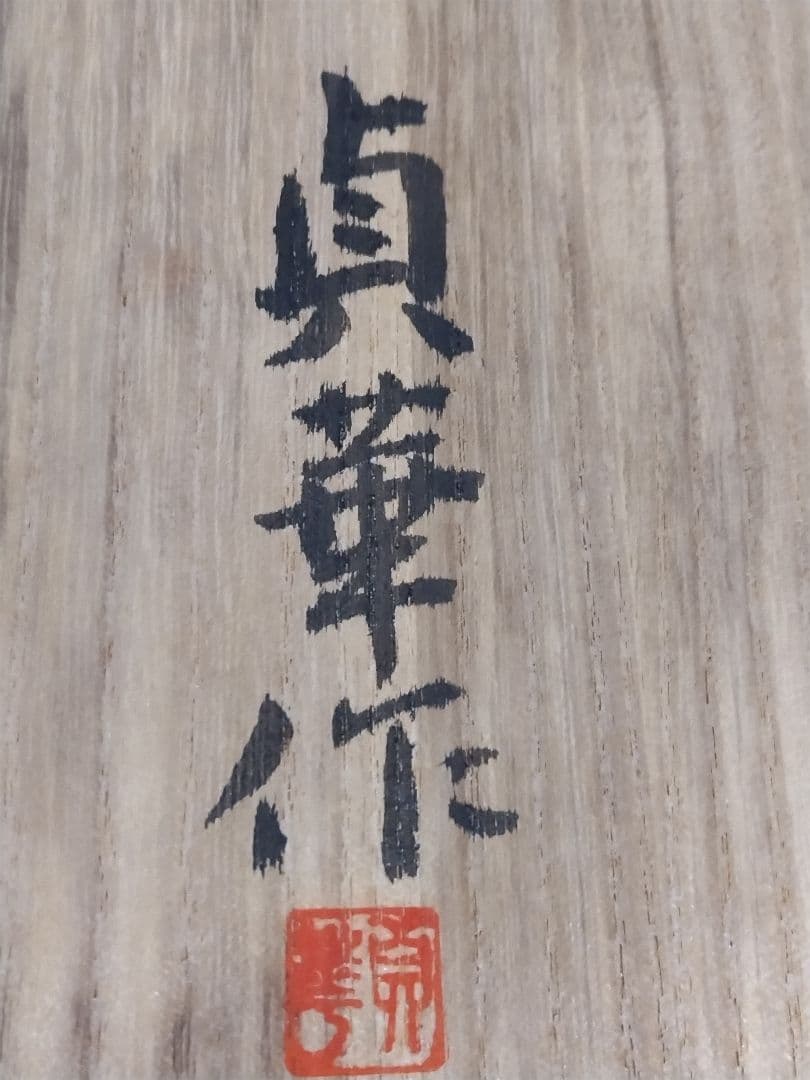 貞華作